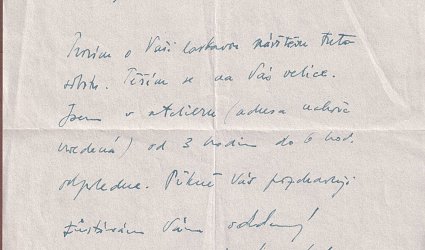 Prosím o Vaši laskavou návštěvu tuto
sobotu. Těším se na Vás velice.
Jsem v atelieru (adresa nahoře
uvedená) od 3 hodin do 6 hod.
odpoledne. Pěkně Vás pozdravuji
Zůstávám Vám oddaný!